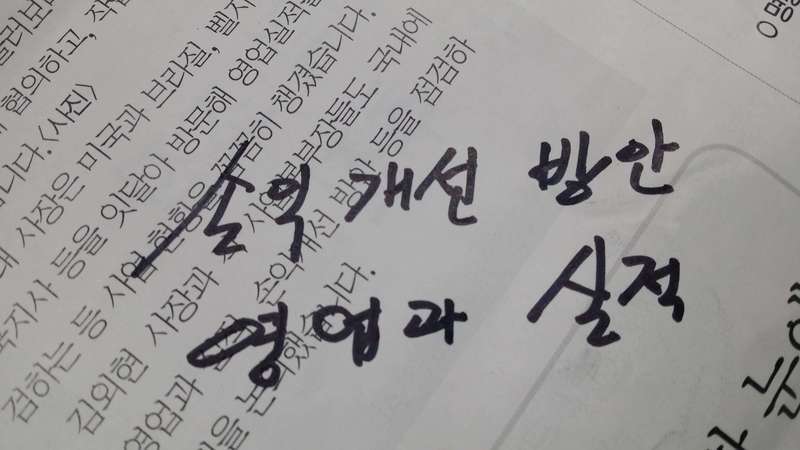 손익 개선 방안
영업과 실적
협의하고,
니다.〈사진〉
사장은 미국과 브라질, 벨
국지사 등을 잇달아 방문해 영업실적을
검하는 등 사업 현황을 꼼꼼히 챙겼습니다.
김외현 사장과 부장들도 국내에
영업과 손익개선 방안 등을 점검하